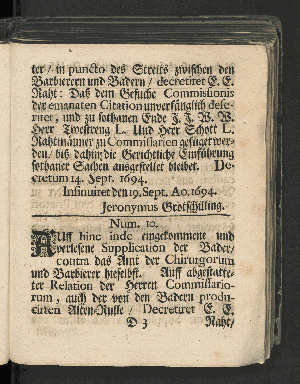 ter / in puncto des Streits zwischen den
Barbierern und Badern / decretiret E. E.
Raht: Daß dem Gesuche Commissionis
der emanaten Citation unverfänglich defe-
riret, und zu sothanen Ende J. J. W. W.
Herr Twestreng L. Und Herr Schott L.
Rahtmänner zu Commissarien gefüget wer-
den / biß dahin die Gerichtliche Einführung
sothaner Sachen ausgestellet bleibet. De-
cretum 14. Sept. 1694.
Insinuiret den 19. Sept. Ao. 1694.
Jeronymus Grotschilling.
Num. 10.
AUff hinc inde eingekommene und
verlesene Supplication der Bader /
contra das Amt der Chirurgorum
und Barbierer hieselbst. Auff abgestatte-
ter Relation der Herren Commissario-
rum, auch der von den Badern produ-
cirten Alten-Rulle / Decretiret E. E.
D 3 Raht /